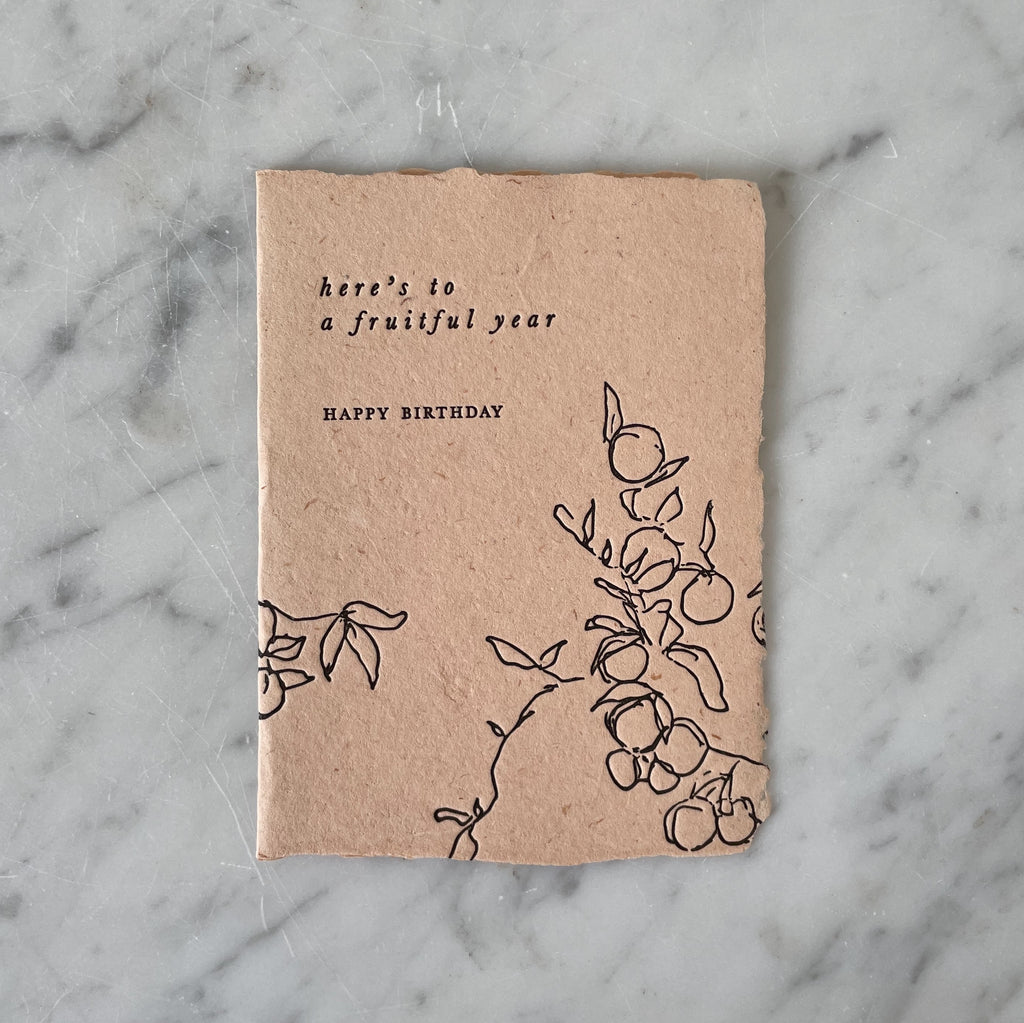 here's to
a fruitful year
HAPPY BIRTHDAY